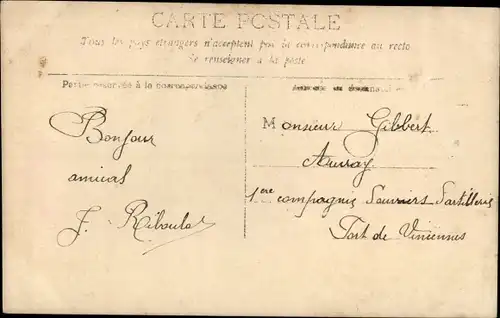 CARTE POSTALE
Tous les pays étrangers n'acceptent pas la correspondance au recto
Se renseigner à la poste
Partie réservée à la correspondance
Adresse du destinataire
Bonjour
amical
J. Riboulet
Monsieur Gibbert
Auvray
1ère compagnie Ouvriers d'artillerie
Fort de Vincennes